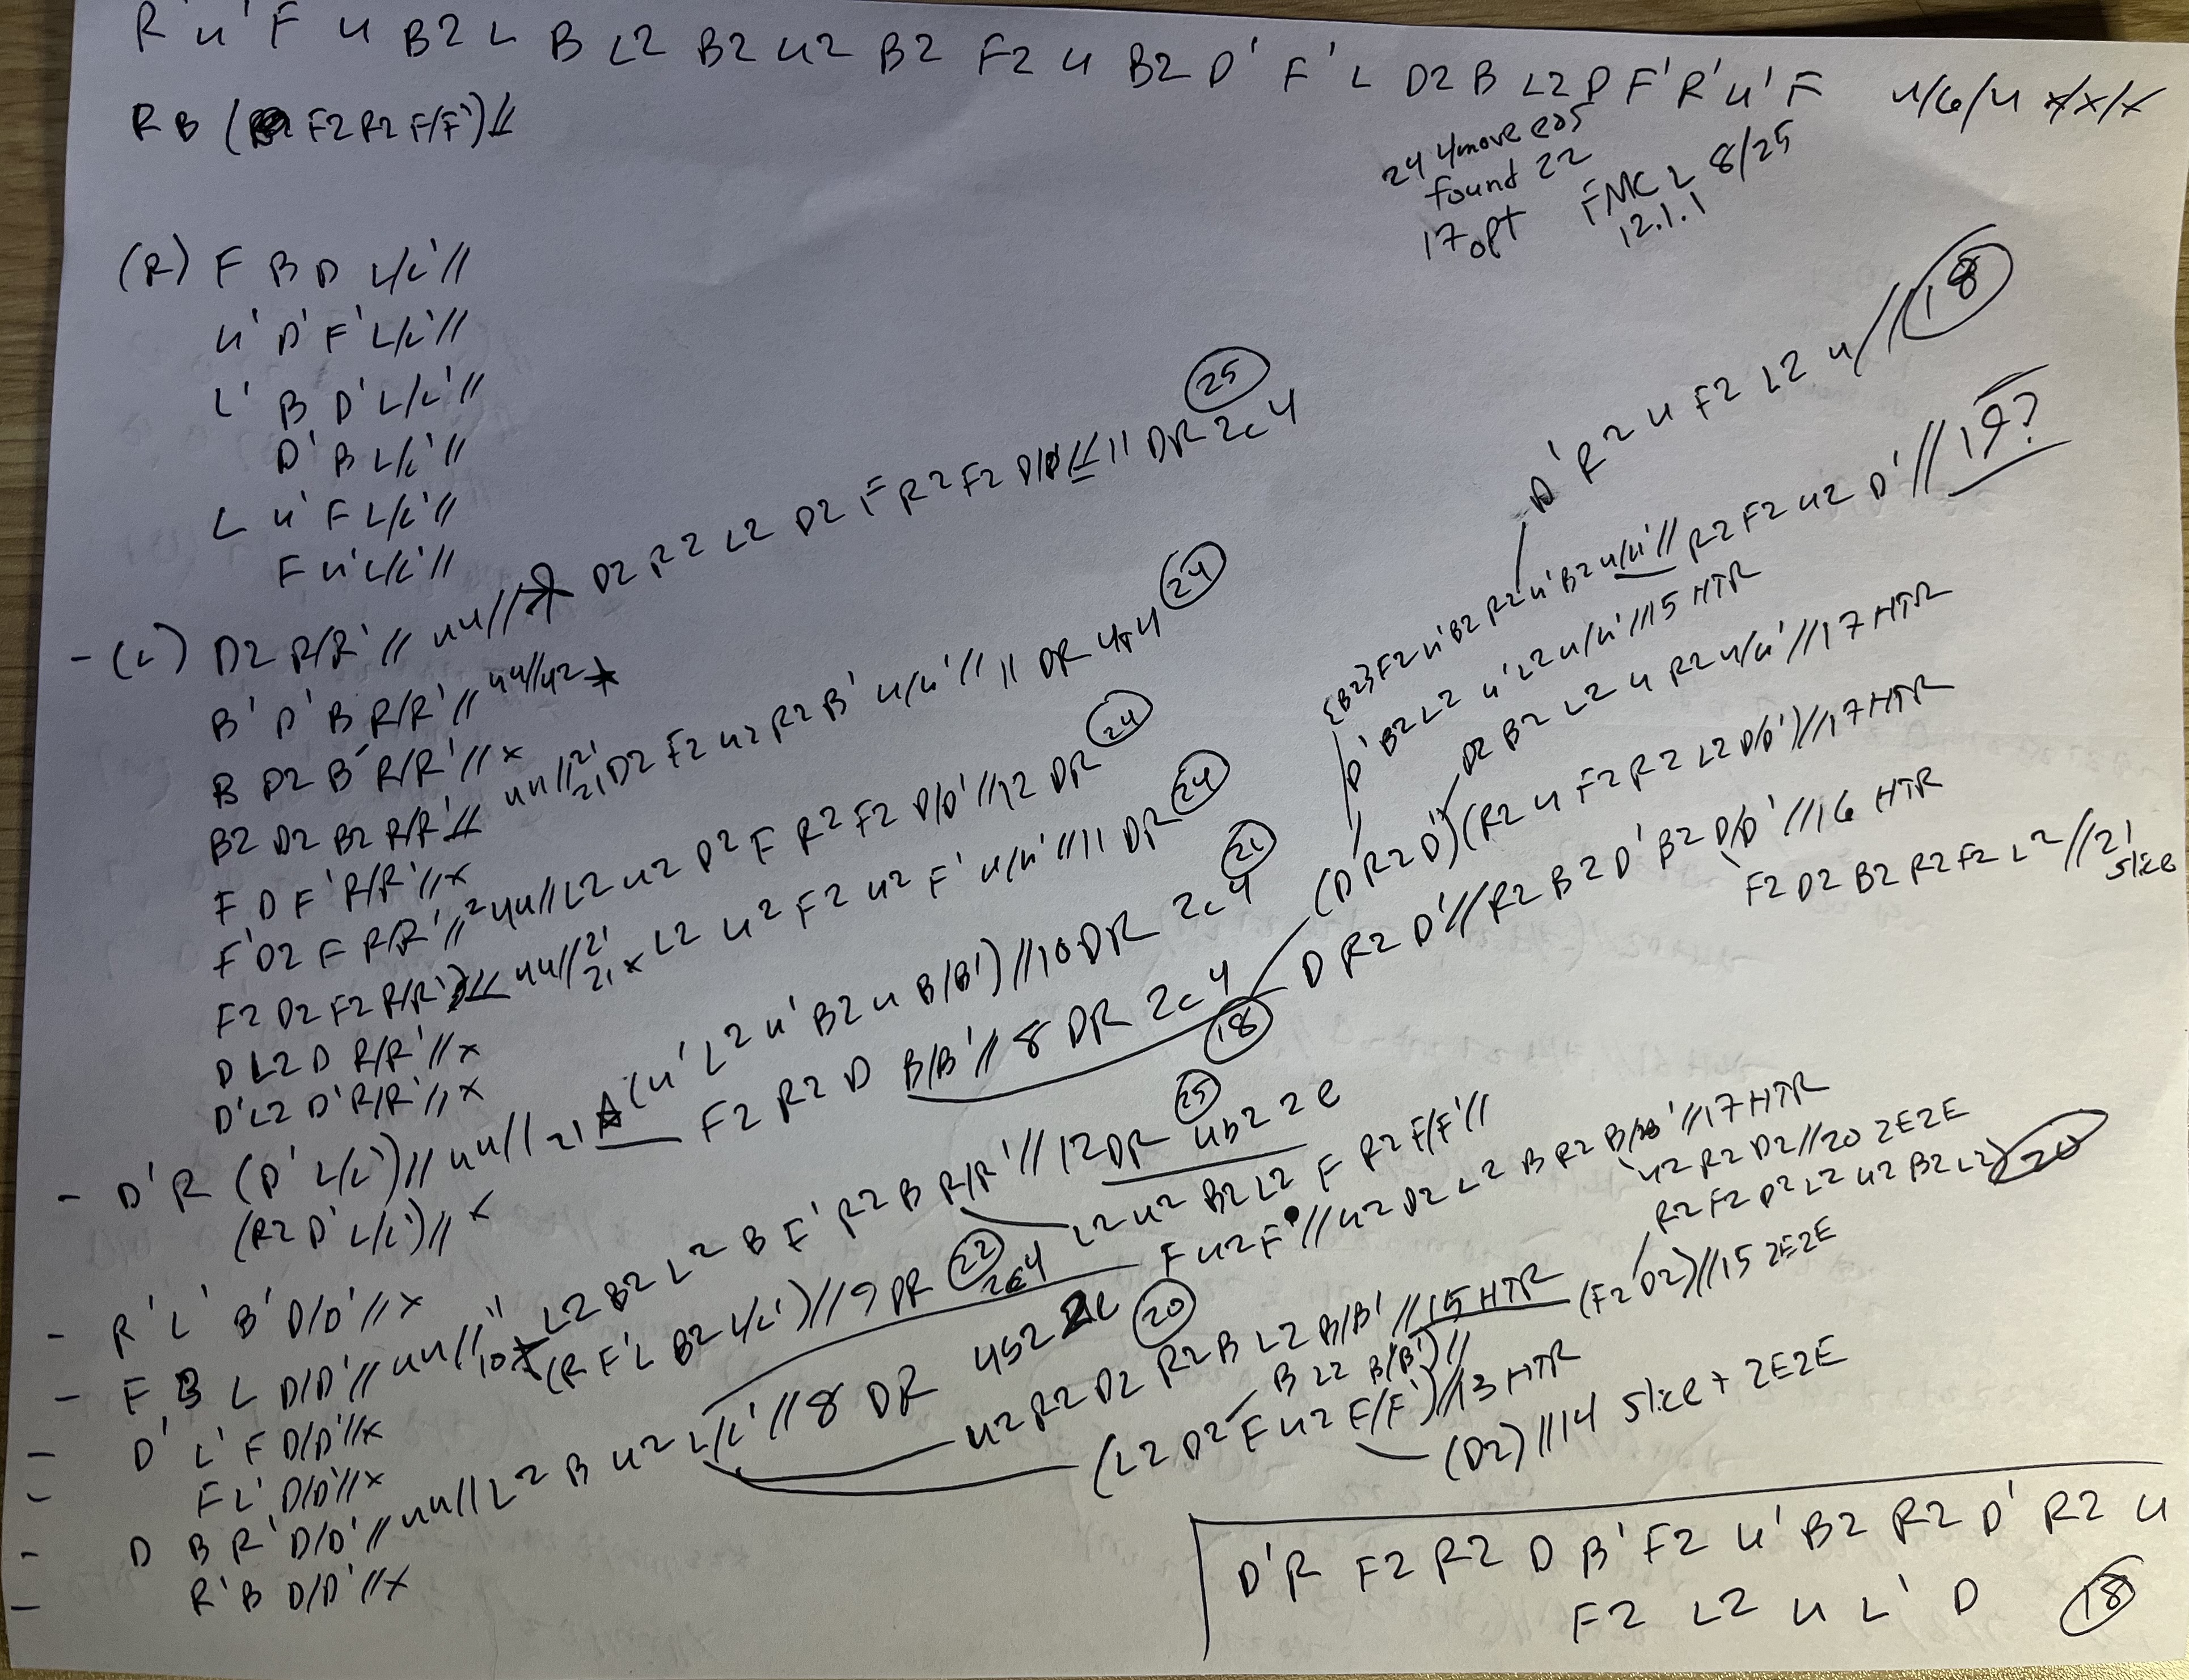 R' u' F u B2 L B L2 B2 u2 B2 F2 u B2 D' F' L D2 B L2 D F' R' u' F 4/6/4 x/x/x
R B ( F2 R2 F/F')//
24 4move eos
found 22
17 opt FMC L 8/25
12.1.1
(R) F B D L/L'//
u' D' F' L/L'//
L' B D' L/L'//
D' B L/L'//
L u' F L/L'//
F u' L/L'//
- (L) D2 R/R'// 44// D2 R2 L2 D2 F R2 F2 D/D' // 11 DR 2c4 25
B' D' B R/R'// 44//42
B D2 B' R/R'// x
B2 D2 B2 R/R'// 44// 2' 21 D2 F2 u2 R2 B' u/u' // 11 DR 4+4 24
F D F' R/R'// x
F' D2 F R/R'// 2 44// L2 u2 D2 F R2 F2 D/D' // 12 DR 24
F2 D2 F2 R/R') // 44// 2' 21 x L2 u2 F2 u2 F' u/u' // 11 DR 24
D L2 D R/R'// x
D' L2 D' R/R'// x
- D'R (D' L/L')// 44// 21 (u' L2 u' B2 u B/B') // 10 DR 2c4 21
F2 R2 D B/B' // 8 DR 2c4 18
(R2 D' L/L')// x
- R' L' B' D/D' // x
- F B L D/D' // 44// 10 L2 B2 L2 B F' R2 B R/R' // 12 DR 4b2 2e 25
(R F' L B2 L/L') // 9 DR 2c4 22
L2 u2 B2 L2 F R2 F/F' //
- D' L' F D/D' // x
- F L' D/D' // x
- D B R' D/D' // 44// L2 B u2 L/L' // 8 DR 4b2 2e 20
- R' B D/D' // x
F u2 F' // u2 D2 L2 B R2 B/B' // 17 HTR
u2 R2 D2 // 20 2E2E
u2 R2 D2 R2 B L2 B/B' // 15 HTR (F2 D2) // 15 2E2E
R2 F2 D2 L2 u2 B2 L2 20
(L2 D2 F u2 F/F') // 13 HTR
B L2 B/B') //
(D2) // 14 slice + 2E2E
D' R2 u F2 L2 u // 18
{B2} F2 u' B2 R2 u' B2 u/u' // R2 F2 u2 D' // 19?
D' B2 L2 u' L2 u/u' // 15 HTR
D2 B2 L2 u R2 u/u' // 17 HTR
(D R2 D') (R2 u F2 R2 L2 D/D') // 17 HTR
D R2 D' // R2 B2 D' B2 D/D' // 16 HTR
F2 D2 B2 R2 F2 L2 // 21 slice
D' R F2 R2 D B' F2 u' B2 R2 D' R2 u
F2 L2 u L' D 18